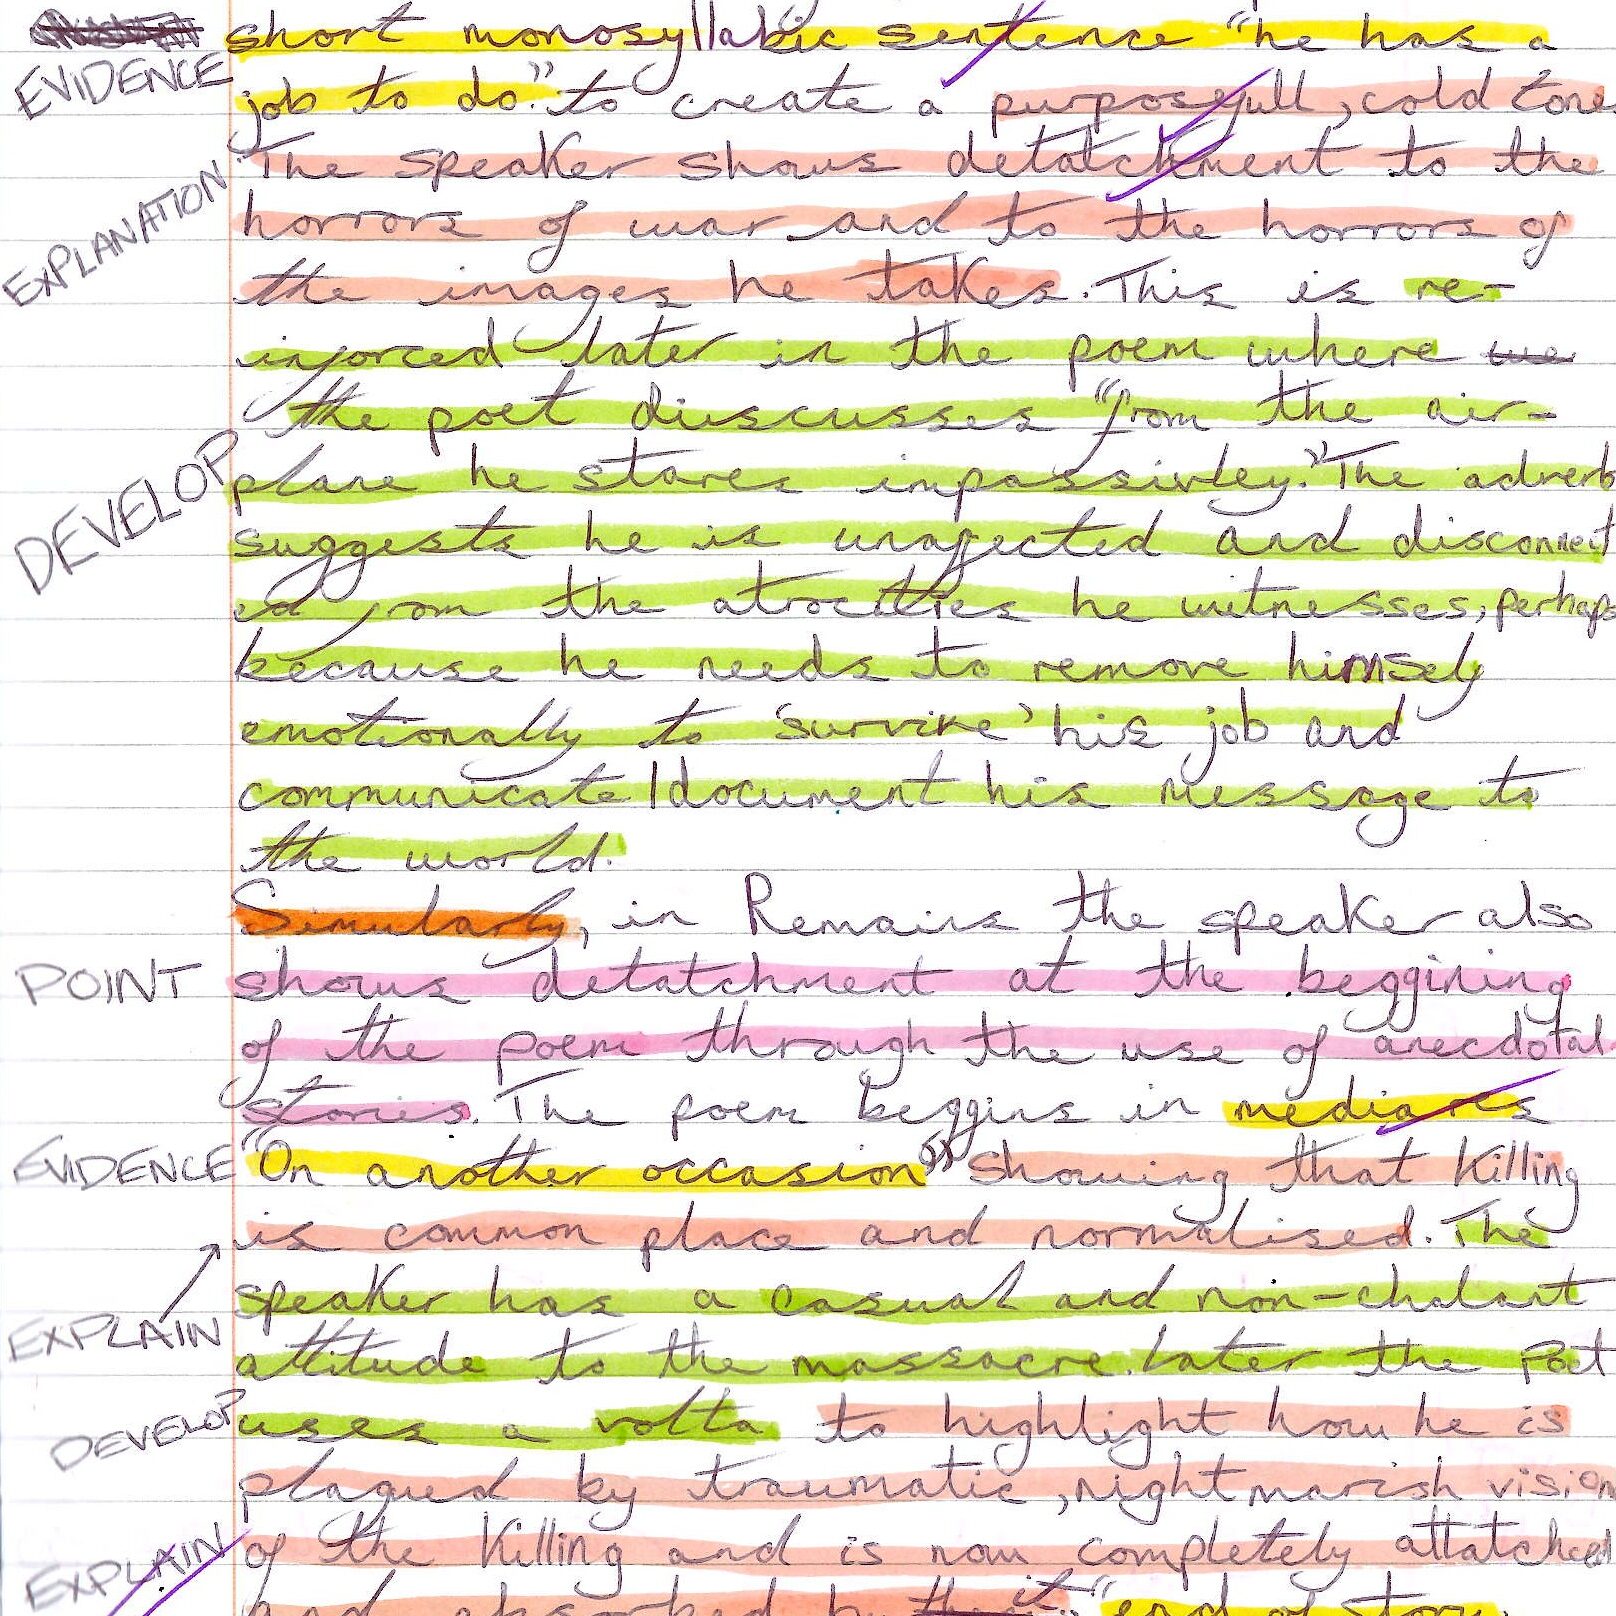 short monosyllabic sentence "he has a
EVIDENCE
job to do." to create a purposefull, cold tone.
The speaker shows detatchment to the
EXPLANATION
horrors of war and to the horrors of
the images he takes. This is re-
inforced later in the poem where we
the poet discusses "from the air-
DEVELOP
plane he stares impassivley." The adverb
suggests he is unaffected and disconnect
ed from the atrocities he witnesses, perhaps
because he needs to remove himself
emotionally to 'survive' his job and
communicate/document his message to
the world.
Simularly, in Remains the speaker also
POINT
shows detatchment at the beggining
of the poem through the use of anecdotal
stories. The poem beggins in media res
EVIDENCE
"On another occasion" showing that killing
is common place and normalised. The
EXPLAIN
speaker has a casual and non-chalant
attitude to the massacre. Later the poet
DEVELOP
uses a volta to highlight how he is
plagued by traumatic, nightmarish vision
EXPLAIN
of the killing and is now completely attatched
and absorbed by it. "end of story.